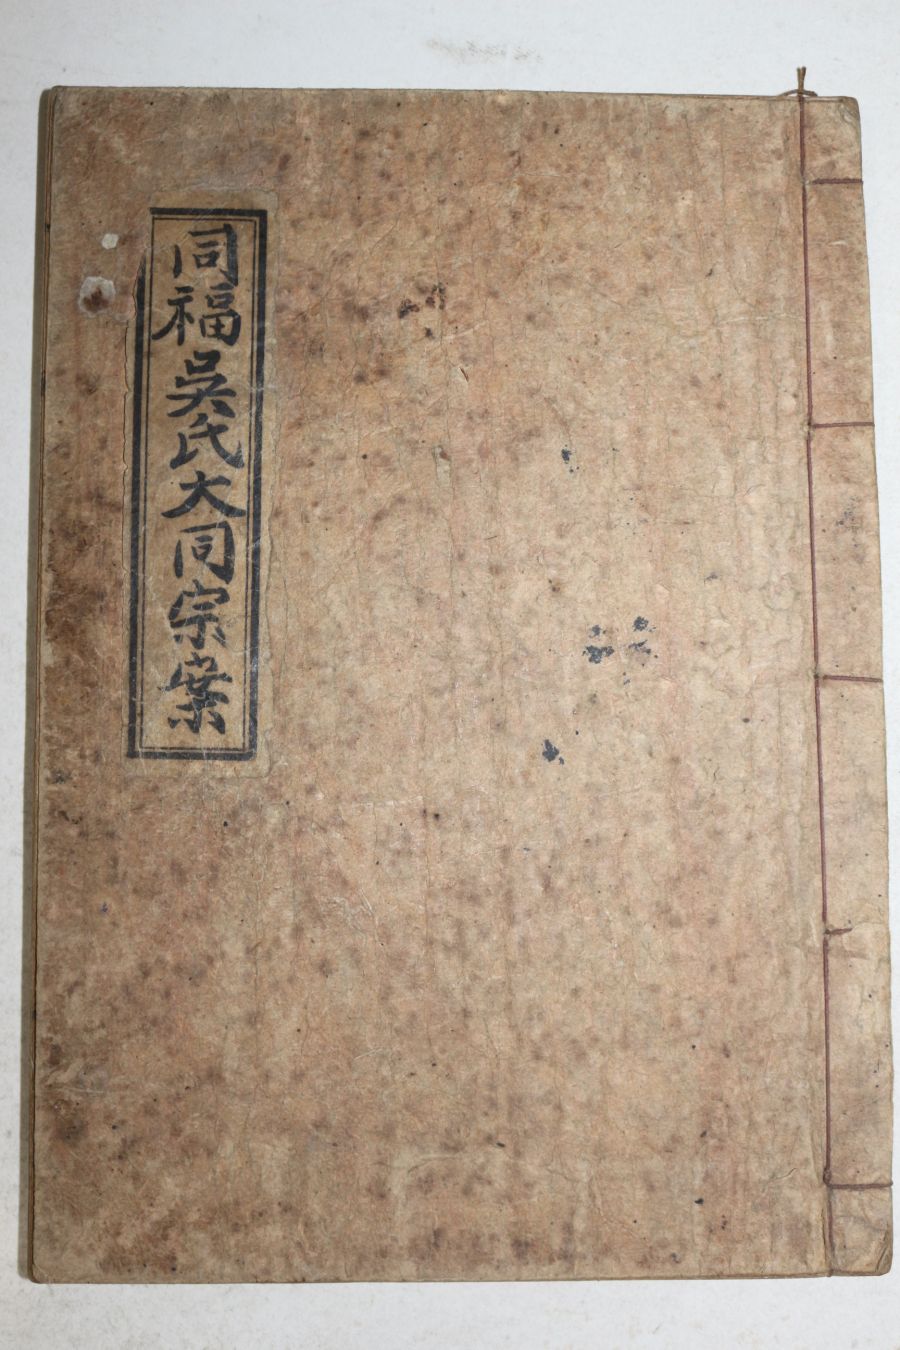 同福吳氏大同宗案